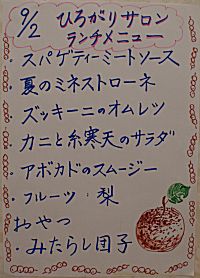 9/2 ひろがりサロン
ランチメニュー
・スパゲティーミートソース
・夏のミネストローネ
・ズッキーニのオムレツ
・カニと糸寒天のサラダ
・アボカドのスムージー
・フルーツ：梨
おやつ
・みたらし団子